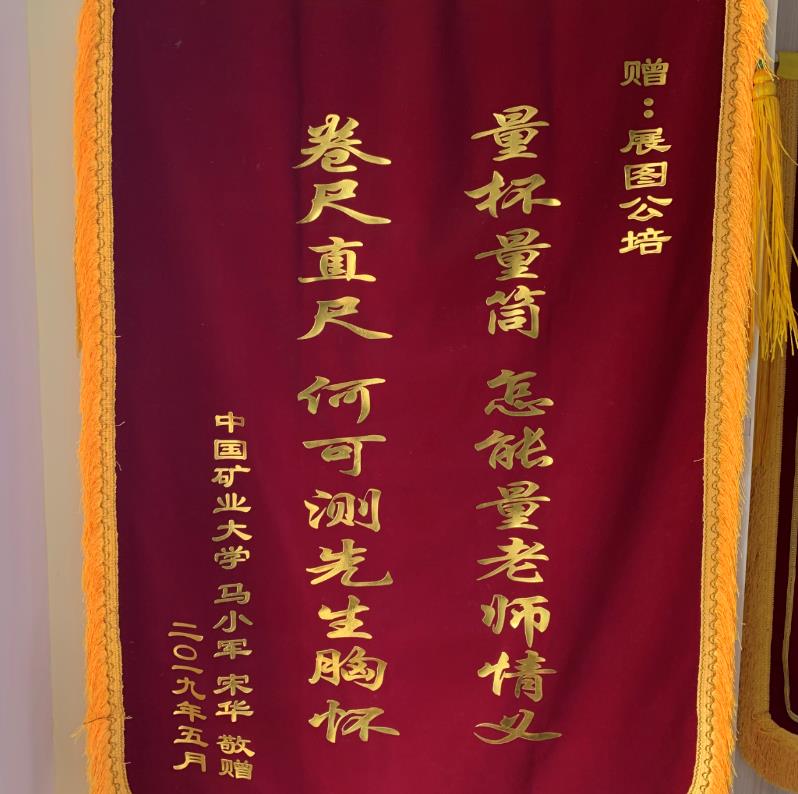 赠：展图公培
量杯量筒 怎能量老师情义
卷尺直尺 何可测先生胸怀
中国矿业大学 马小军 宋华 敬赠
二〇一九年五月